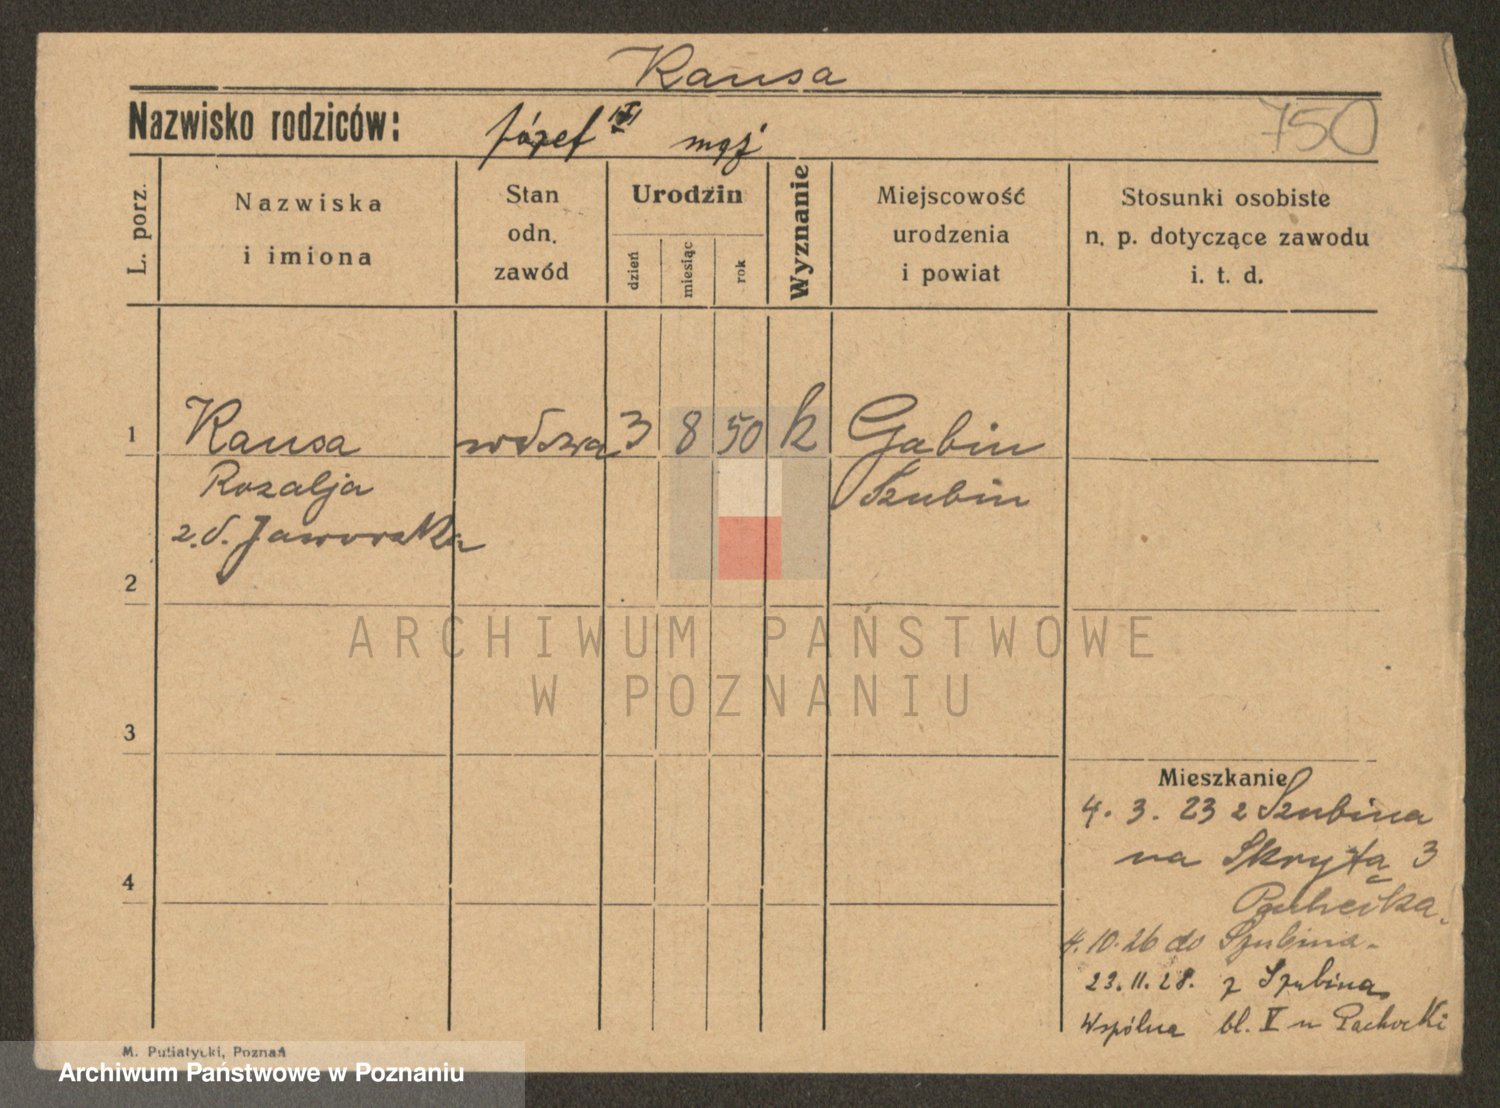 Kausa
Nazwisko rodziców:
Józef mąż
750
L. porz.
Nazwiska
i imiona
Stan
odn.
zawód
Urodzin
dzień
miesiąc
rok
Wyznanie
Miejscowość
urodzenia
i powiat
Stosunki osobiste
n. p. dotyczące zawodu
i. t. d.
1 Kausa wdowa 3 8 50 k Gabin
Rozalja Szubin
z.d. Jaworska
2
3
4
ARCHIWUM PAŃSTWOWE
W POZNANIU
Mieszkanie
4. 3. 23 z Szubina
na Skrytą 3
4.10.26 do Szubina.
23.11.28. z Szubina
Wspólna bl. V u Pachocki
M. Putiatycki, Poznań
Archiwum Państwowe w Poznaniu